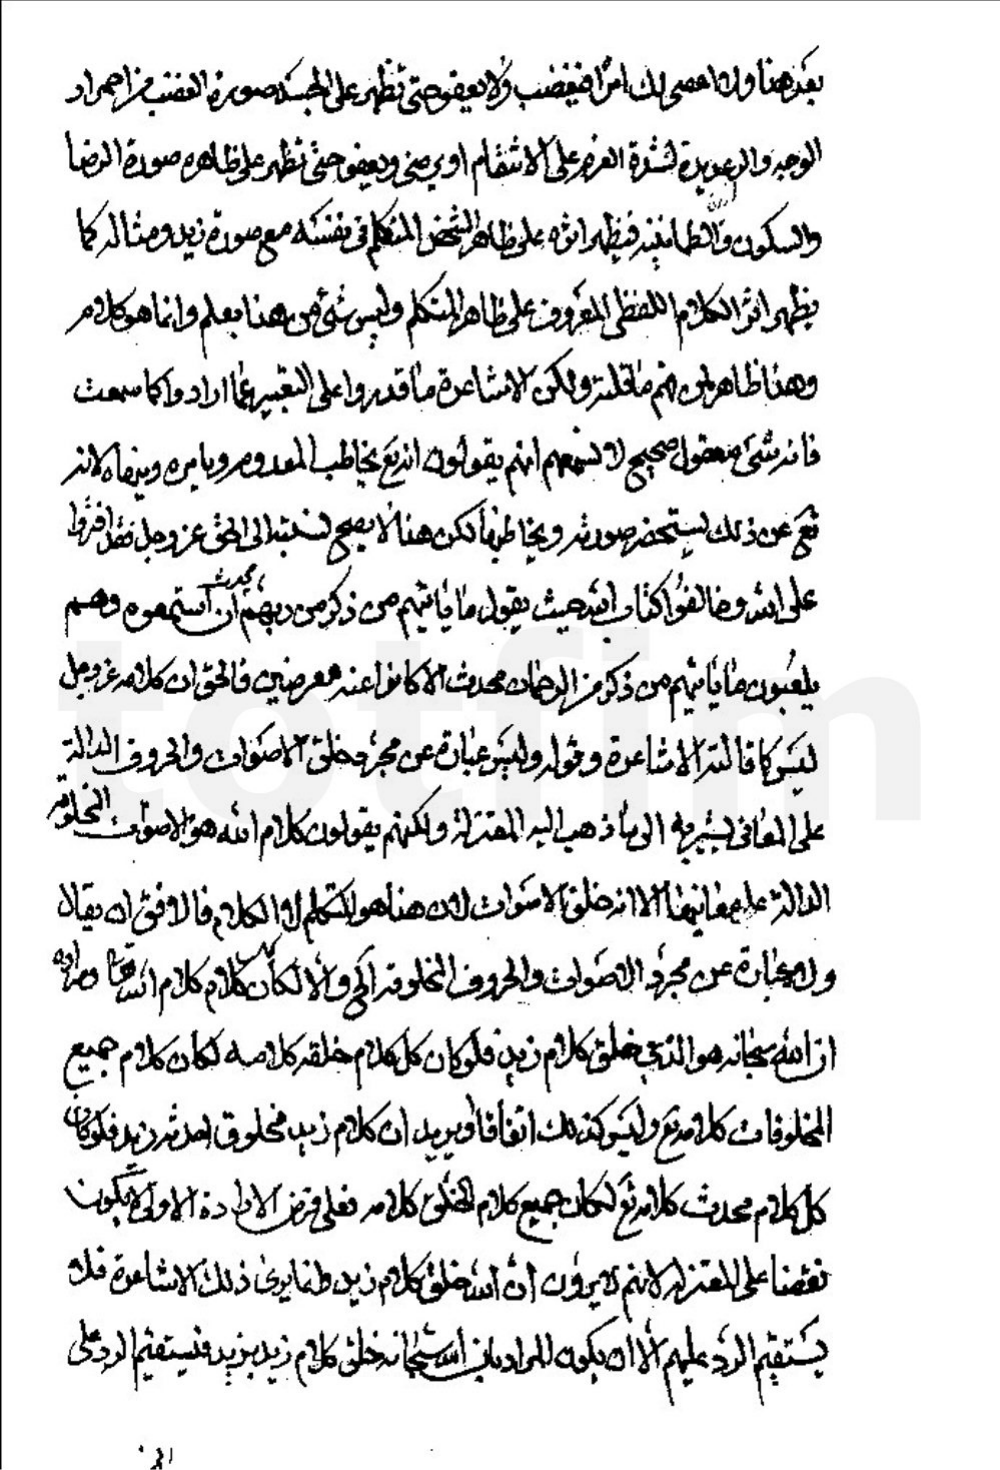 بعد هذا واذا عصى لك امرا فتغضب ولا تعفو حتى تظهر على الجسد صورة الغضب من احمرار
الوجه والرعدة لشدة العزم على الانتقام او يرضى ويعفو حتى تظهر على ظاهره صورة الرضا
والسكون والطمانينة فيظهر اثره على ظاهر الشخص المتكلم في نفسه مع صورة زيد ومثاله كما
يظهر اثر الكلام اللفظي المعروف على ظاهر المتكلم وليس شئ من هذا بعلم وانما هو كلام
وهذا ظاهر لمن فهم ما قلته ولكن الاشاعرة ما قدروا على التعبير عما ارادوا كما سمعت
فانه شئ معقول صحيح لا نسمعهم انهم يقولون انه تع يخاطب المعدوم ويامره وينهاه لانه
تع عن ذلك يستحضر صورته ويخاطبها لكن هذا لا يصح نسبته الى الحق عز وجل فقد افتروا
على الله وخالفوا كتاب الله حيث يقول ما ياتيهم من ذكر من ربهم محدث الا استمعوه وهم
يلعبون ما ياتيهم من ذكر من الرحمان محدث الا كانوا عنه معرضين فالحق ان كلامه عز وجل
ليس كما قالته الاشاعرة وقوله وليس عبارة عن مجرد خلق الاصوات والحروف الدالة
على المعاني يشير به الى ما ذهب اليه المعتزلة ولكنهم يقولون كلام الله هو الاصوات المخلوقة
الدالة على معانيها لا انه خلق الاصوات لان هذا هو المتكلم لا الكلام فالاوفق ان يقال
ولا عبارة عن مجرد الاصوات والحروف المخلوقة الخ والا لكان كل كلام كلام الله تعا مراده
ان الله سبحانه هو الذي خلق كلام زيد فلو كان كل كلام خلقه كلامه لكان كلام جميع
المخلوقات كلامه تع وليس كذلك اتفاقا او يريد ان كلام زيد مخلوق احدثه زيد فلو كان
كل كلام محدث كلامه تع لكان جميع كلام الخلق كلامه فعلى فرض الارادة الاولى لا يكون
نقضا على المعتزلة لانهم لا يرون ان الله خلق كلام زيد وانما يرى ذلك الاشاعرة فلا
يستقيم الرد عليهم الا ان يكون المراد بان الله سبحانه خلق كلام زيد بزيد فيستقيم الرد على